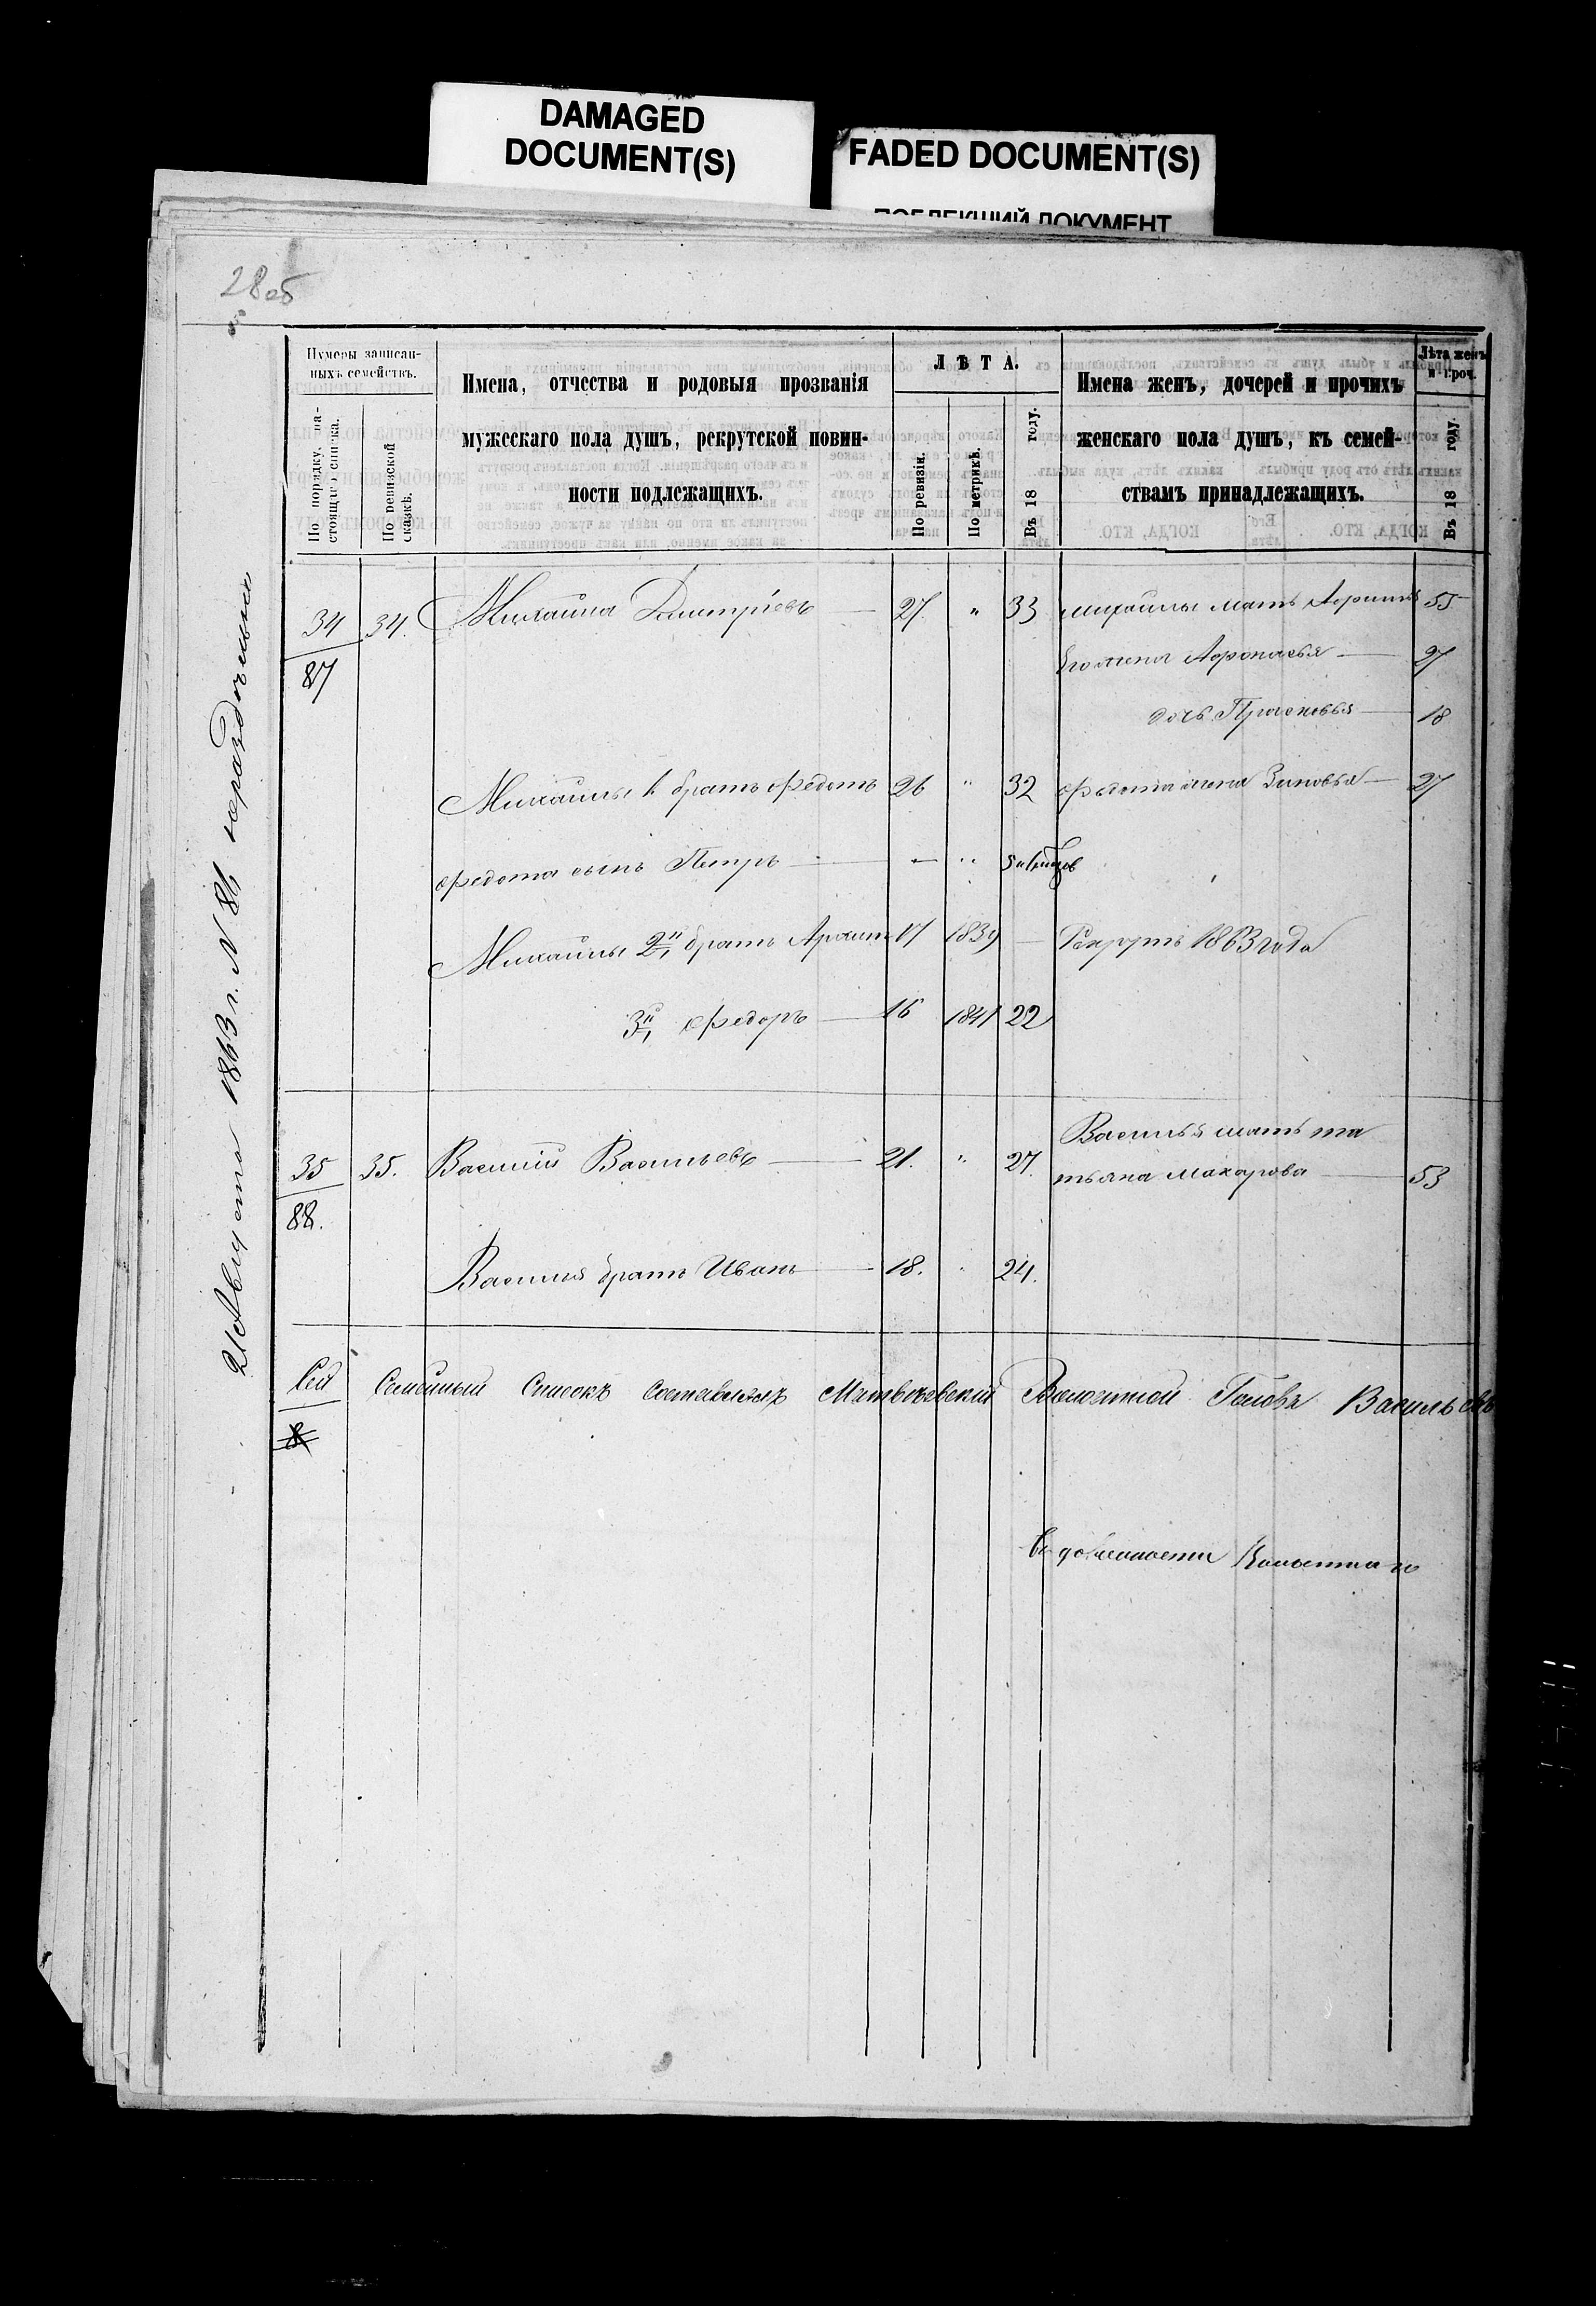 DAMAGED
DOCUMENT(S)
FADED DOCUMENT(S)
28об
Нумеры записан-
ныхъ семействъ.
По порядку на-
стоящаго списка.
По ревизской
сказкѣ.
Имена, отчества и родовыя прозванія
мужескаго пола душъ, рекрутской повин-
ности подлежащихъ.
ЛѢТА.
По ревизіи.
По метрикѣ.
Въ 18 году.
Имена женъ, дочерей и прочихъ
женскаго пола душъ, къ семей-
ствамъ принадлежащихъ.
Лѣта женъ
и проч.
Въ 18 году.
34 34. Михаила Дмитріевъ — 27. " 33 Михаилы мать 55
87
Его жена Афонасья — 27
дочь Прасковья — 18
Михаилы 1 братъ Федотъ 26 " 32 Федота жена Зиновья — 27
Федота сынъ Петръ — — "
Михаилы 2й братъ Архипъ 17 1839 — Рекрутъ 1863 года
3й Федоръ — 16 1841 22
35 35. Василій Васильевъ — 21. " 27. Василья мать Та
тьяна Макарова — 53
88.
Василия братъ Иванъ — 18. 24.
Сей Семейный Списокъ Составлялъ Матвѣевскій Волостной Голова Васильевъ
8
въ должности Волостнаго
21 Августа 1863 г. N 86